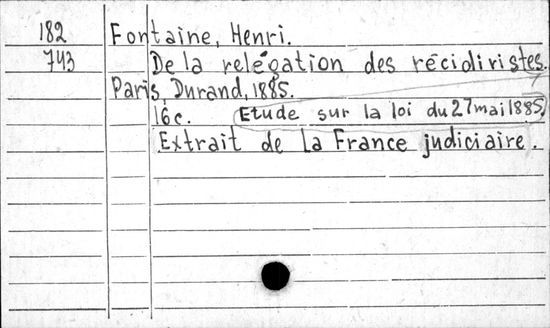 182 Fontaine, Henri.
743 De la relégation des récidivistes.
Paris, Durand, 1885.
16c. Etude sur la loi du 27 mai 1885.
Extrait de la France judiciaire.